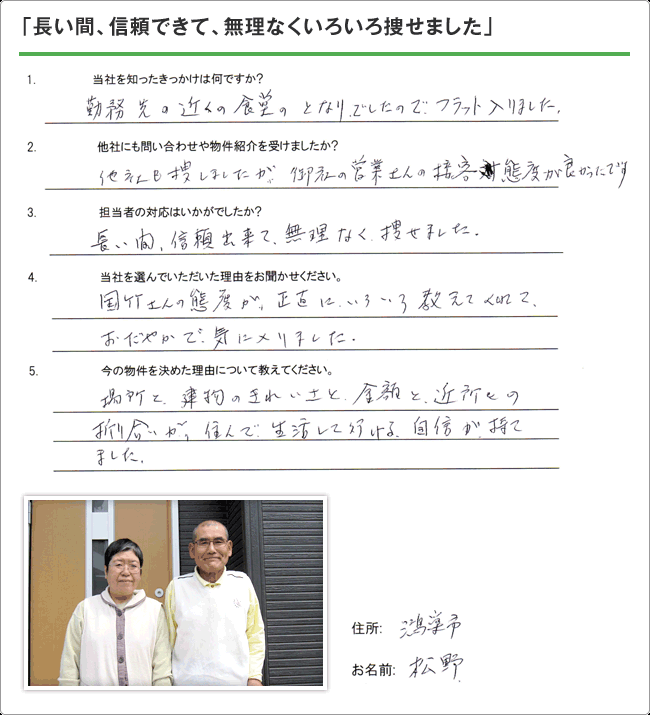 「長い間、信頼できて、無理なくいろいろ捜せました」
1. 当社を知ったきっかけは何ですか?
勤務先の近くの食堂のとなりでしたので、フラット入りました。
2. 他社にも問い合わせや物件紹介を受けましたか?
他社も捜しましたが、御社の営業さんの接客対態度が良かったです
3. 担当者の対応はいかがでしたか?
長い間、信頼出来て、無理なく、捜せました。
4. 当社を選んでいただいた理由をお聞かせください。
国竹さんの態度が、正直に、いろいろ教えてくれて、
おだやかで、気に入りました。
5. 今の物件を決めた理由について教えてください。
場所と、建物のきれいさと、金額と、近所との
折り合いが、住んで、生活して行ける、自信が、持て
ました。
住所: 鴻巣市
お名前: 松野